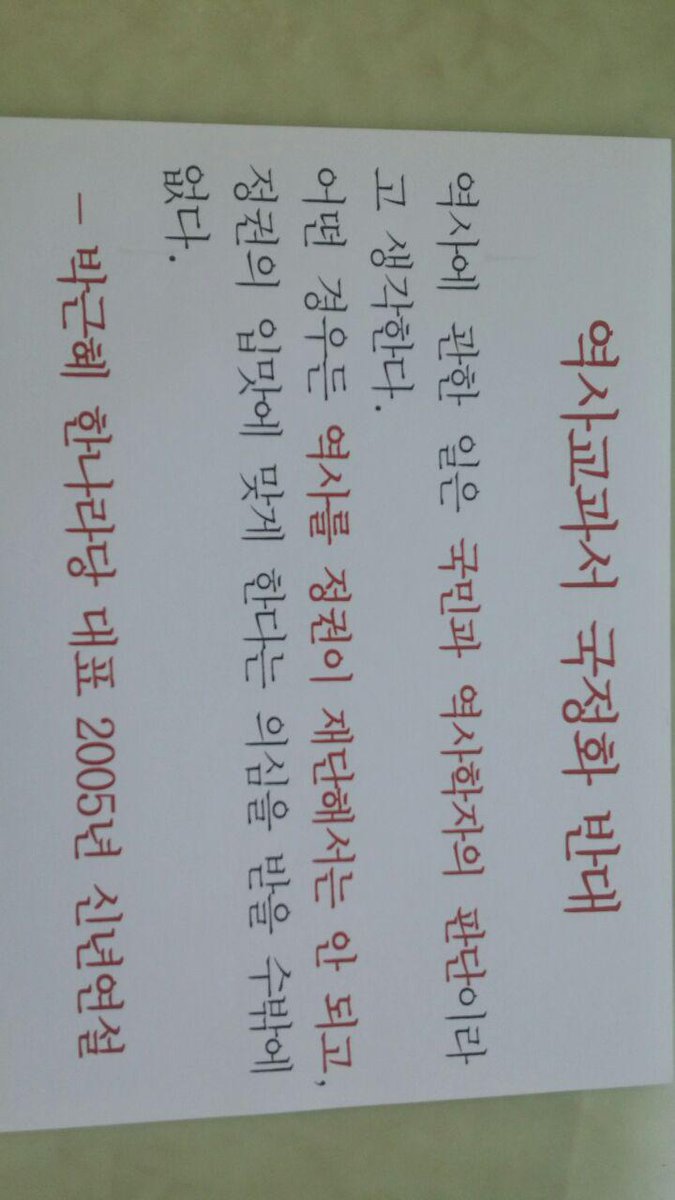 역사교과서 국정화 반대
역사에 관한 일은 국민과 역사학자의 판단이라
고 생각한다.
어떤 경우든 역사를 정권이 재단해서는 안 되고,
정권의 입맛에 맞게 한다는 의심을 받을 수밖에
없다.
- 박근혜 한나라당 대표 2005년 신년연설